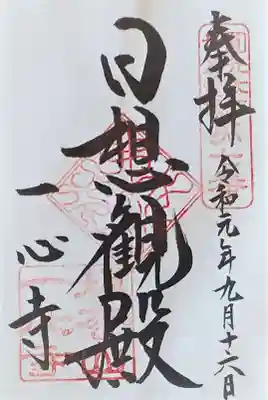 奉拝
令和元年九月十六日
日想観殿
一心寺